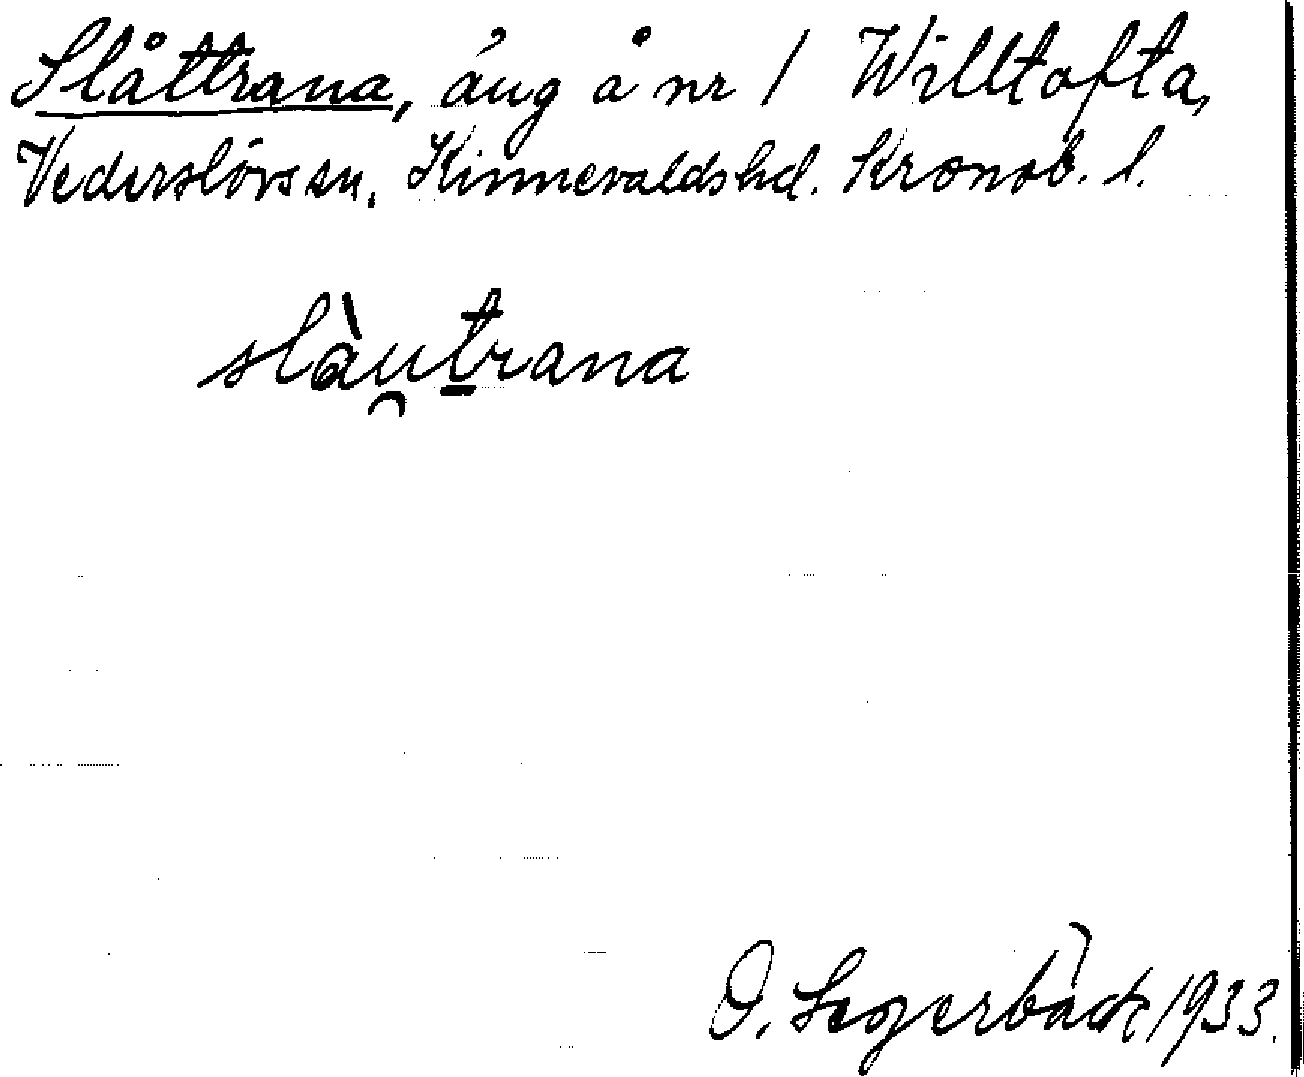 Slåttrana, äng å nr 1 Willtofta,
Vederslövs sn, Kinnevalds hd. Kronob. l.
slàu̯t̲rana
O. Segerbäck 1933.